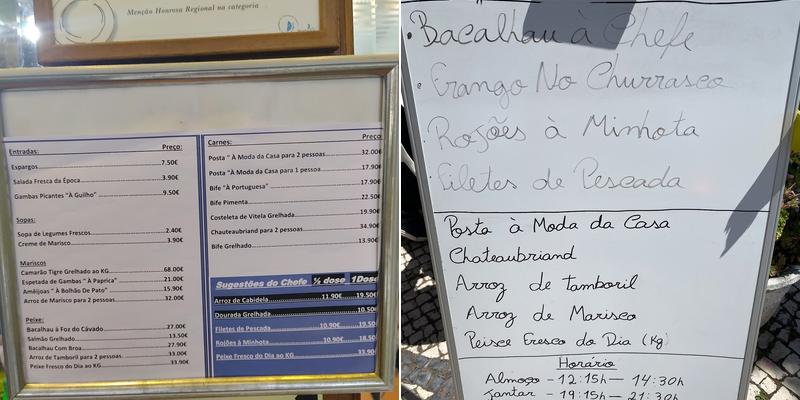 Menção Honrosa Regional na categoria
Entradas: Preço:
Espargos 7.50€
Salada Fresca da Época 3.90€
Gambas Picantes "À Guilho" 9.50€
Sopas:
Sopa de Legumes Frescos 2.40€
Creme de Marisco 3.90€
Mariscos
Camarão Tigre Grelhado ao KG 68.00€
Espetada de Gambas " À Paprica" 21.00€
Amêijoas " À Bolhão De Pato" 15.90€
Arroz de Marisco para 2 pessoas 32.00€
Peixe:
Bacalhau à Foz do Cávado 27.00€
Salmão Grelhado 13.50€
Bacalhau Com Broa 27.90€
Arroz de Tamboril para 2 pessoas 33.00€
Peixe Fresco do Dia ao KG 33.90€
Carnes: Preço
Posta " À Moda da Casa para 2 pessoas 32.00€
Posta "À Moda da Casa para 1 pessoa 17.90€
Bife "À Portuguesa" 17.90€
Bife Pimenta 22.50€
Costeleta de Vitela Grelhada 19.90€
Chauteaubriand para 2 pessoas 34.90€
Bife Grelhado 13.90€
Sugestões do Chefe ½ dose 1Dose
Arroz de Cabidela 11.90€ 19.50€
Dourada Grelhada 10.50€
Filetes de Pescada 10.90€ 19.50€
Rojões à Minhota 10.90€ 18.50€
Peixe Fresco do Dia ao KG 33.90€
Bacalhau à Chefe
Frango No Churrasco
Rojões à Minhota
Filetes de Pescada
Posta à Moda da Casa
Chateaubriand
Arroz de tamboril
Arroz de Marisco
Peixe Fresco do Dia (Kg)
Horário
Almoço - 12:15h — 14:30h
Jantar - 19:15h — 21:30h